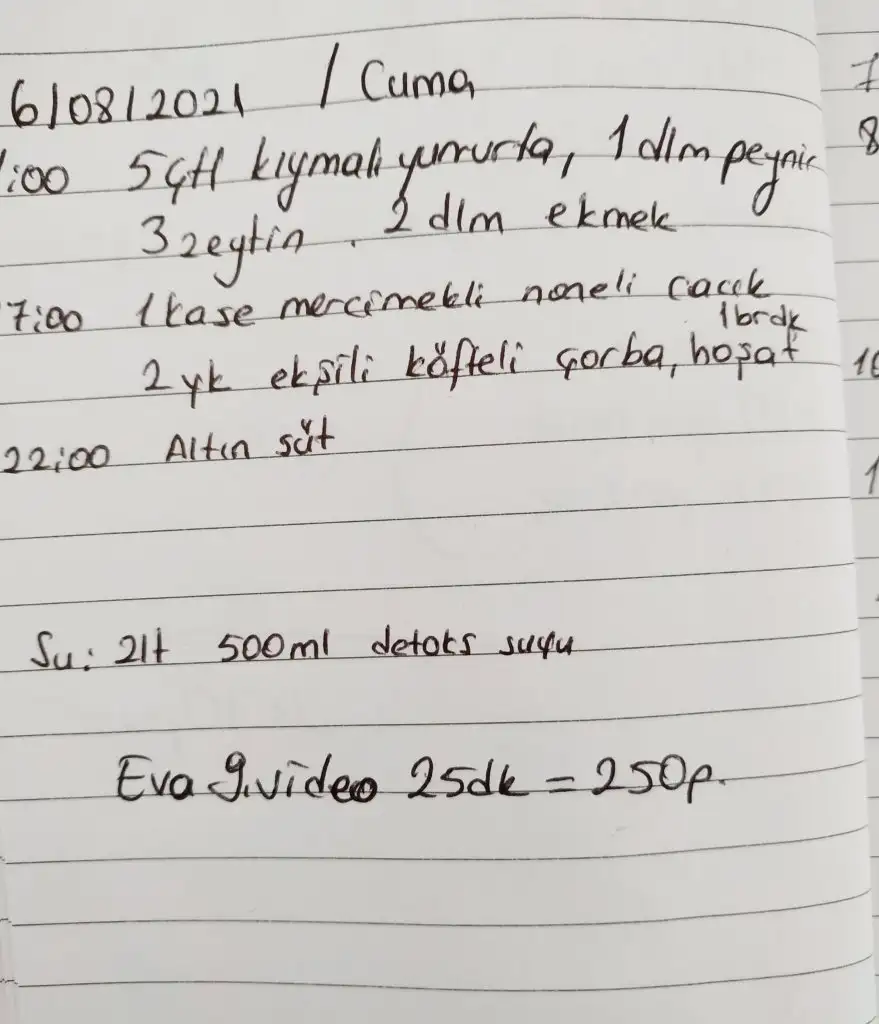 6/08/2021 / Cuma
:00 5 çtl kıymalı yumurta, 1 dlm peynir
3 zeytin. 2 dlm ekmek
7:00 1 kase mercimekli naneli cacık
1 brdk
2 yk ekşili köfteli çorba, hoşaf
22:00 Altın süt
Su: 2lt 500ml detoks suyu
Eva 9.video 25dk = 250p.
7
8